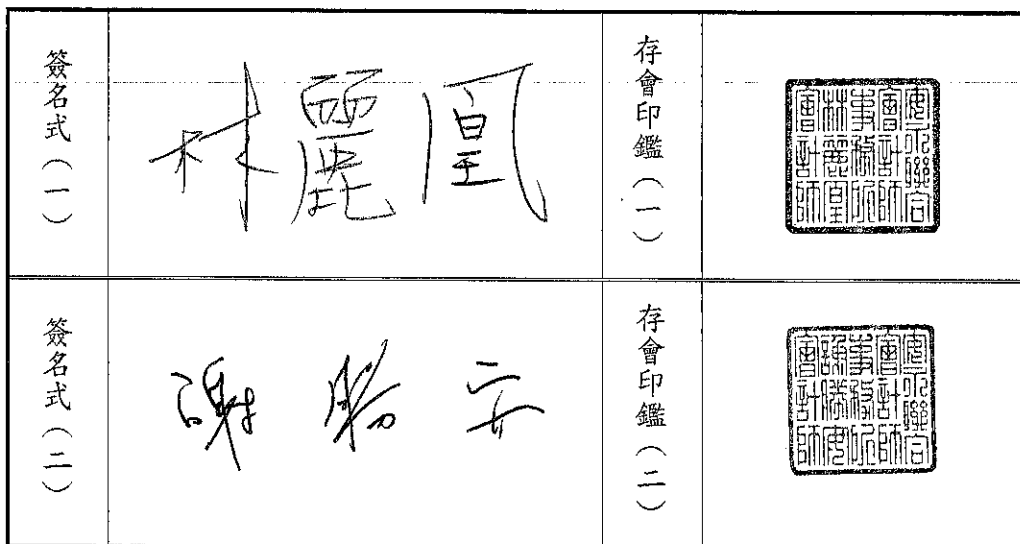 簽名式(一)
林麗凰
存會印鑑(一)
安永聯合
會計師
事務所
林麗凰
會計師
簽名式(二)
謝勝安
存會印鑑(二)
安永聯合
會計師
事務所
謝勝安
會計師